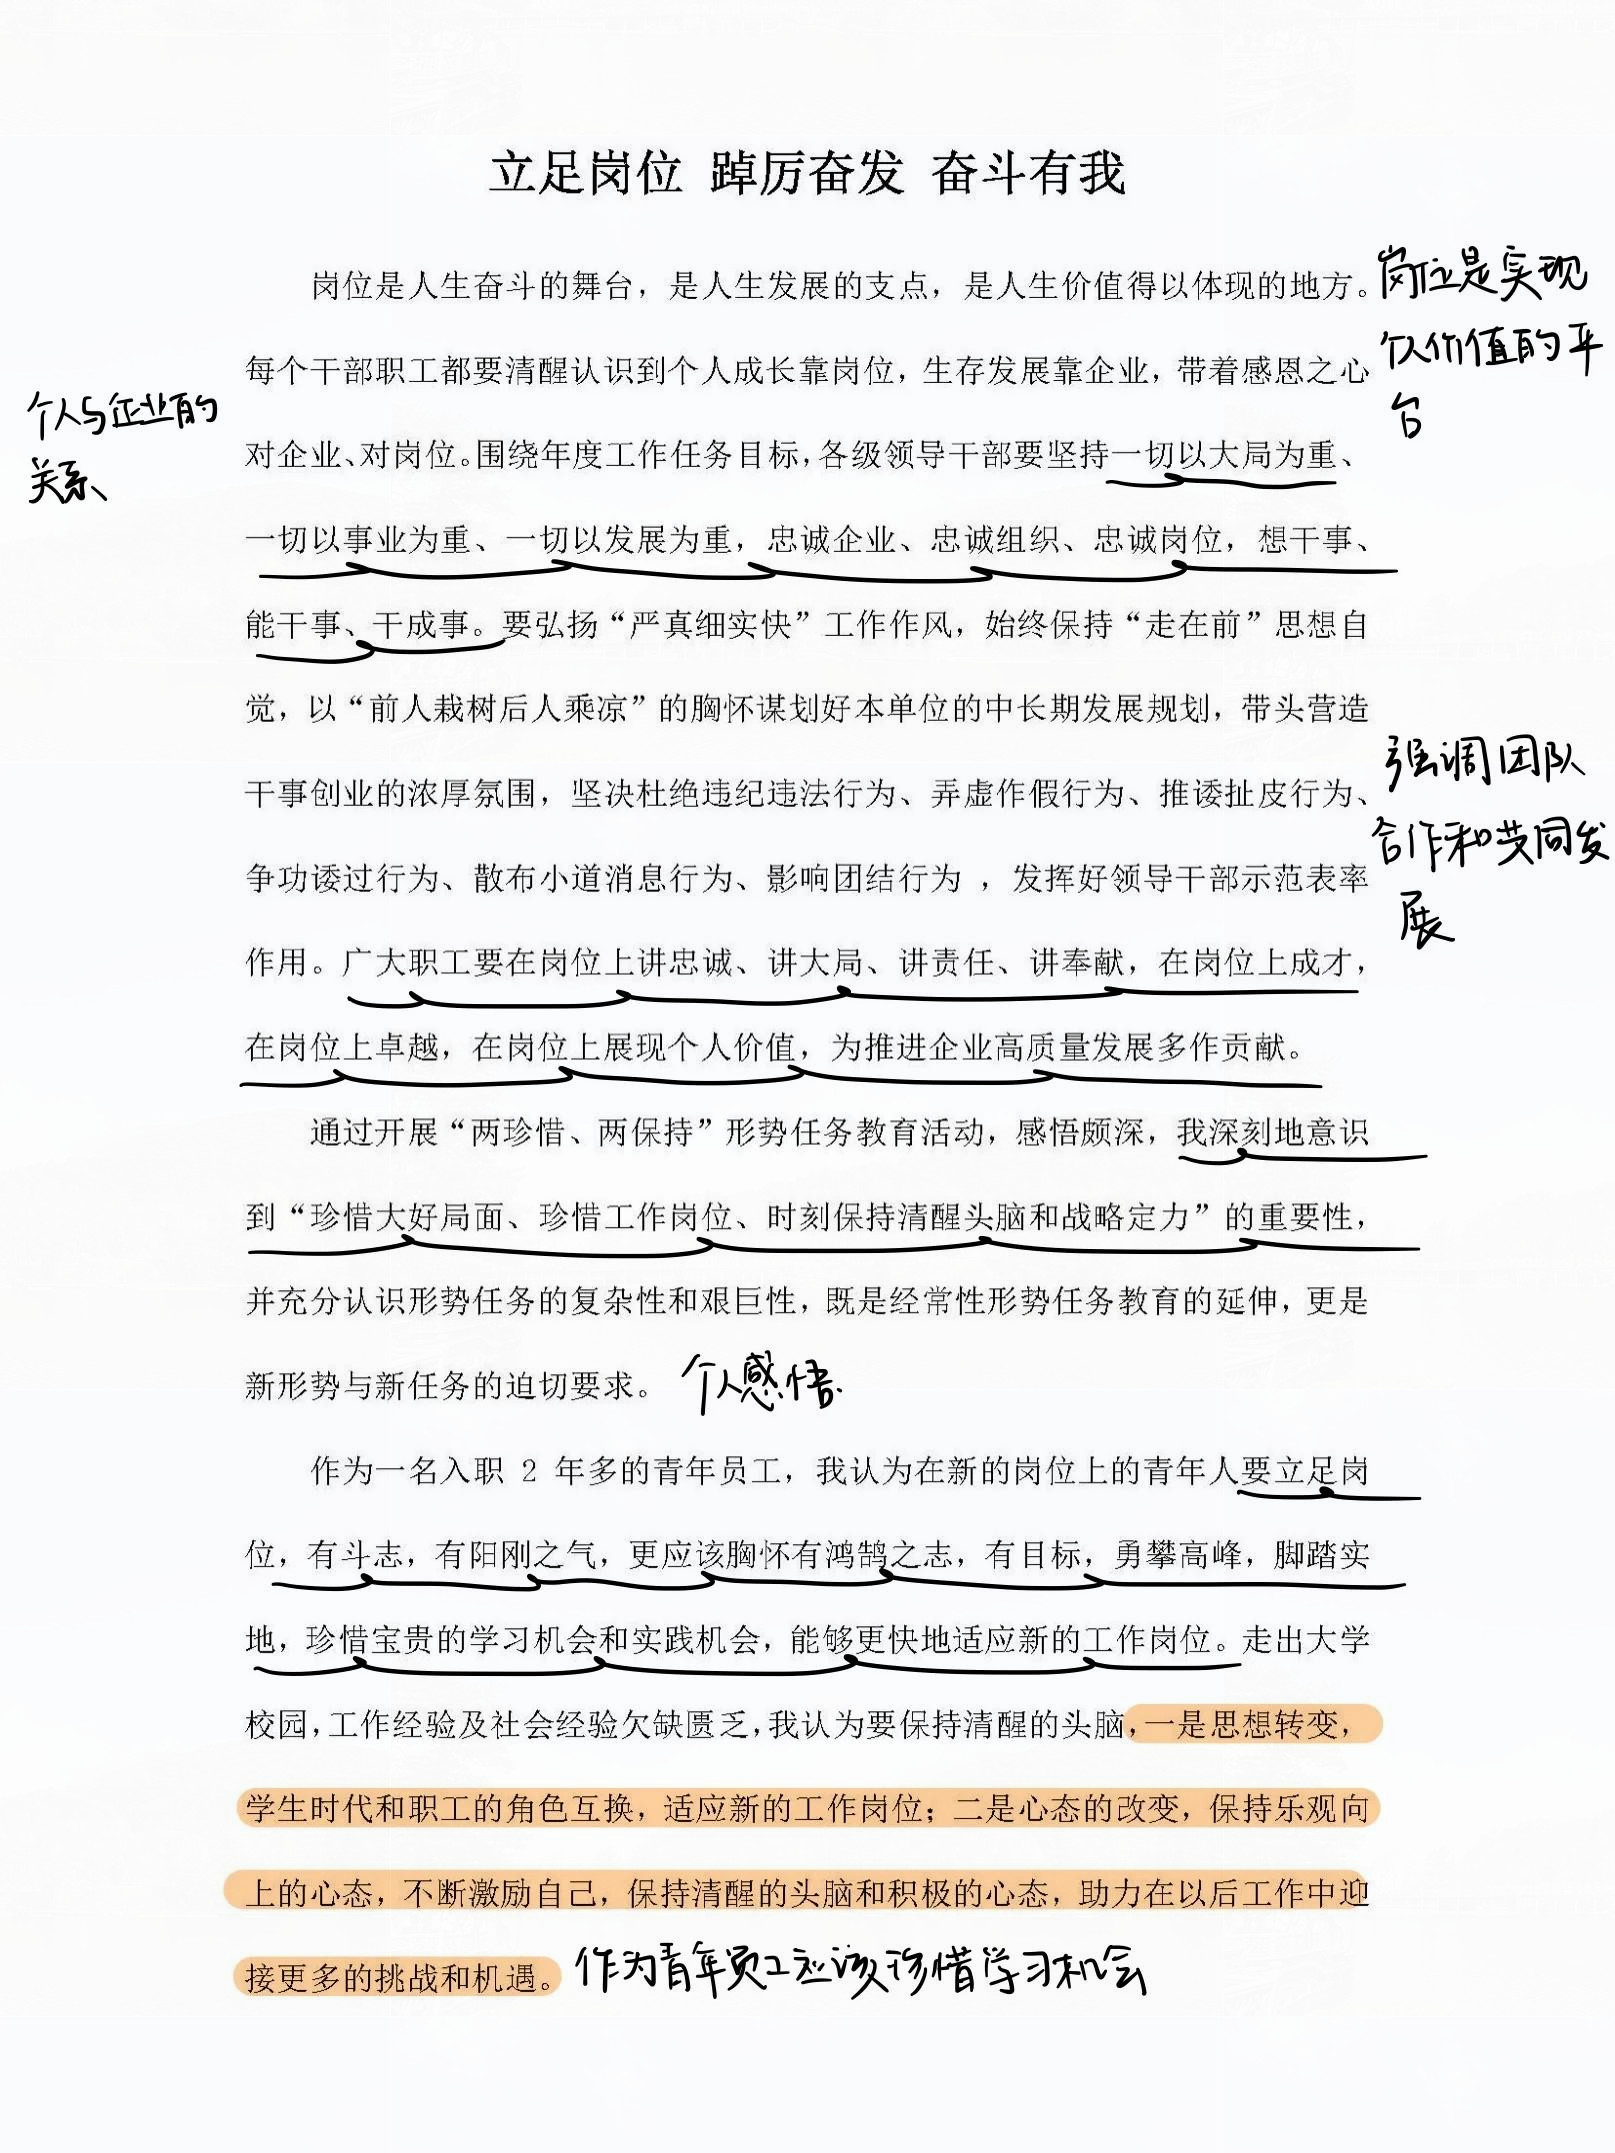 立足岗位 踔厉奋发 奋斗有我
岗位是人生奋斗的舞台，是人生发展的支点，是人生价值得以体现的地方。
岗位是实现
个人价值的平
台
每个干部职工都要清醒认识到个人成长靠岗位，生存发展靠企业，带着感恩之心
个人与企业的
关系、
对企业、对岗位。围绕年度工作任务目标，各级领导干部要坚持一切以大局为重、
一切以事业为重、一切以发展为重，忠诚企业、忠诚组织、忠诚岗位，想干事、
能干事、干成事。要弘扬“严真细实快”工作作风，始终保持“走在前”思想自
觉，以“前人栽树后人乘凉”的胸怀谋划好本单位的中长期发展规划，带头营造
强调团队
合作和共同发
展
干事创业的浓厚氛围，坚决杜绝违纪违法行为、弄虚作假行为、推诿扯皮行为、
争功诿过行为、散布小道消息行为、影响团结行为 ，发挥好领导干部示范表率
作用。广大职工要在岗位上讲忠诚、讲大局、讲责任、讲奉献，在岗位上成才，
在岗位上卓越，在岗位上展现个人价值，为推进企业高质量发展多作贡献。
通过开展“两珍惜、两保持”形势任务教育活动，感悟颇深，我深刻地意识
到“珍惜大好局面、珍惜工作岗位、时刻保持清醒头脑和战略定力”的重要性，
并充分认识形势任务的复杂性和艰巨性，既是经常性形势任务教育的延伸，更是
新形势与新任务的迫切要求。 个人感悟.
作为一名入职 2 年多的青年员工，我认为在新的岗位上的青年人要立足岗
位，有斗志，有阳刚之气，更应该胸怀有鸿鹄之志，有目标，勇攀高峰，脚踏实
地，珍惜宝贵的学习机会和实践机会，能够更快地适应新的工作岗位。走出大学
校园，工作经验及社会经验欠缺匮乏，我认为要保持清醒的头脑，一是思想转变，
学生时代和职工的角色互换，适应新的工作岗位；二是心态的改变，保持乐观向
上的心态，不断激励自己，保持清醒的头脑和积极的心态，助力在以后工作中迎
接更多的挑战和机遇。 作为青年员工应该珍惜学习机会